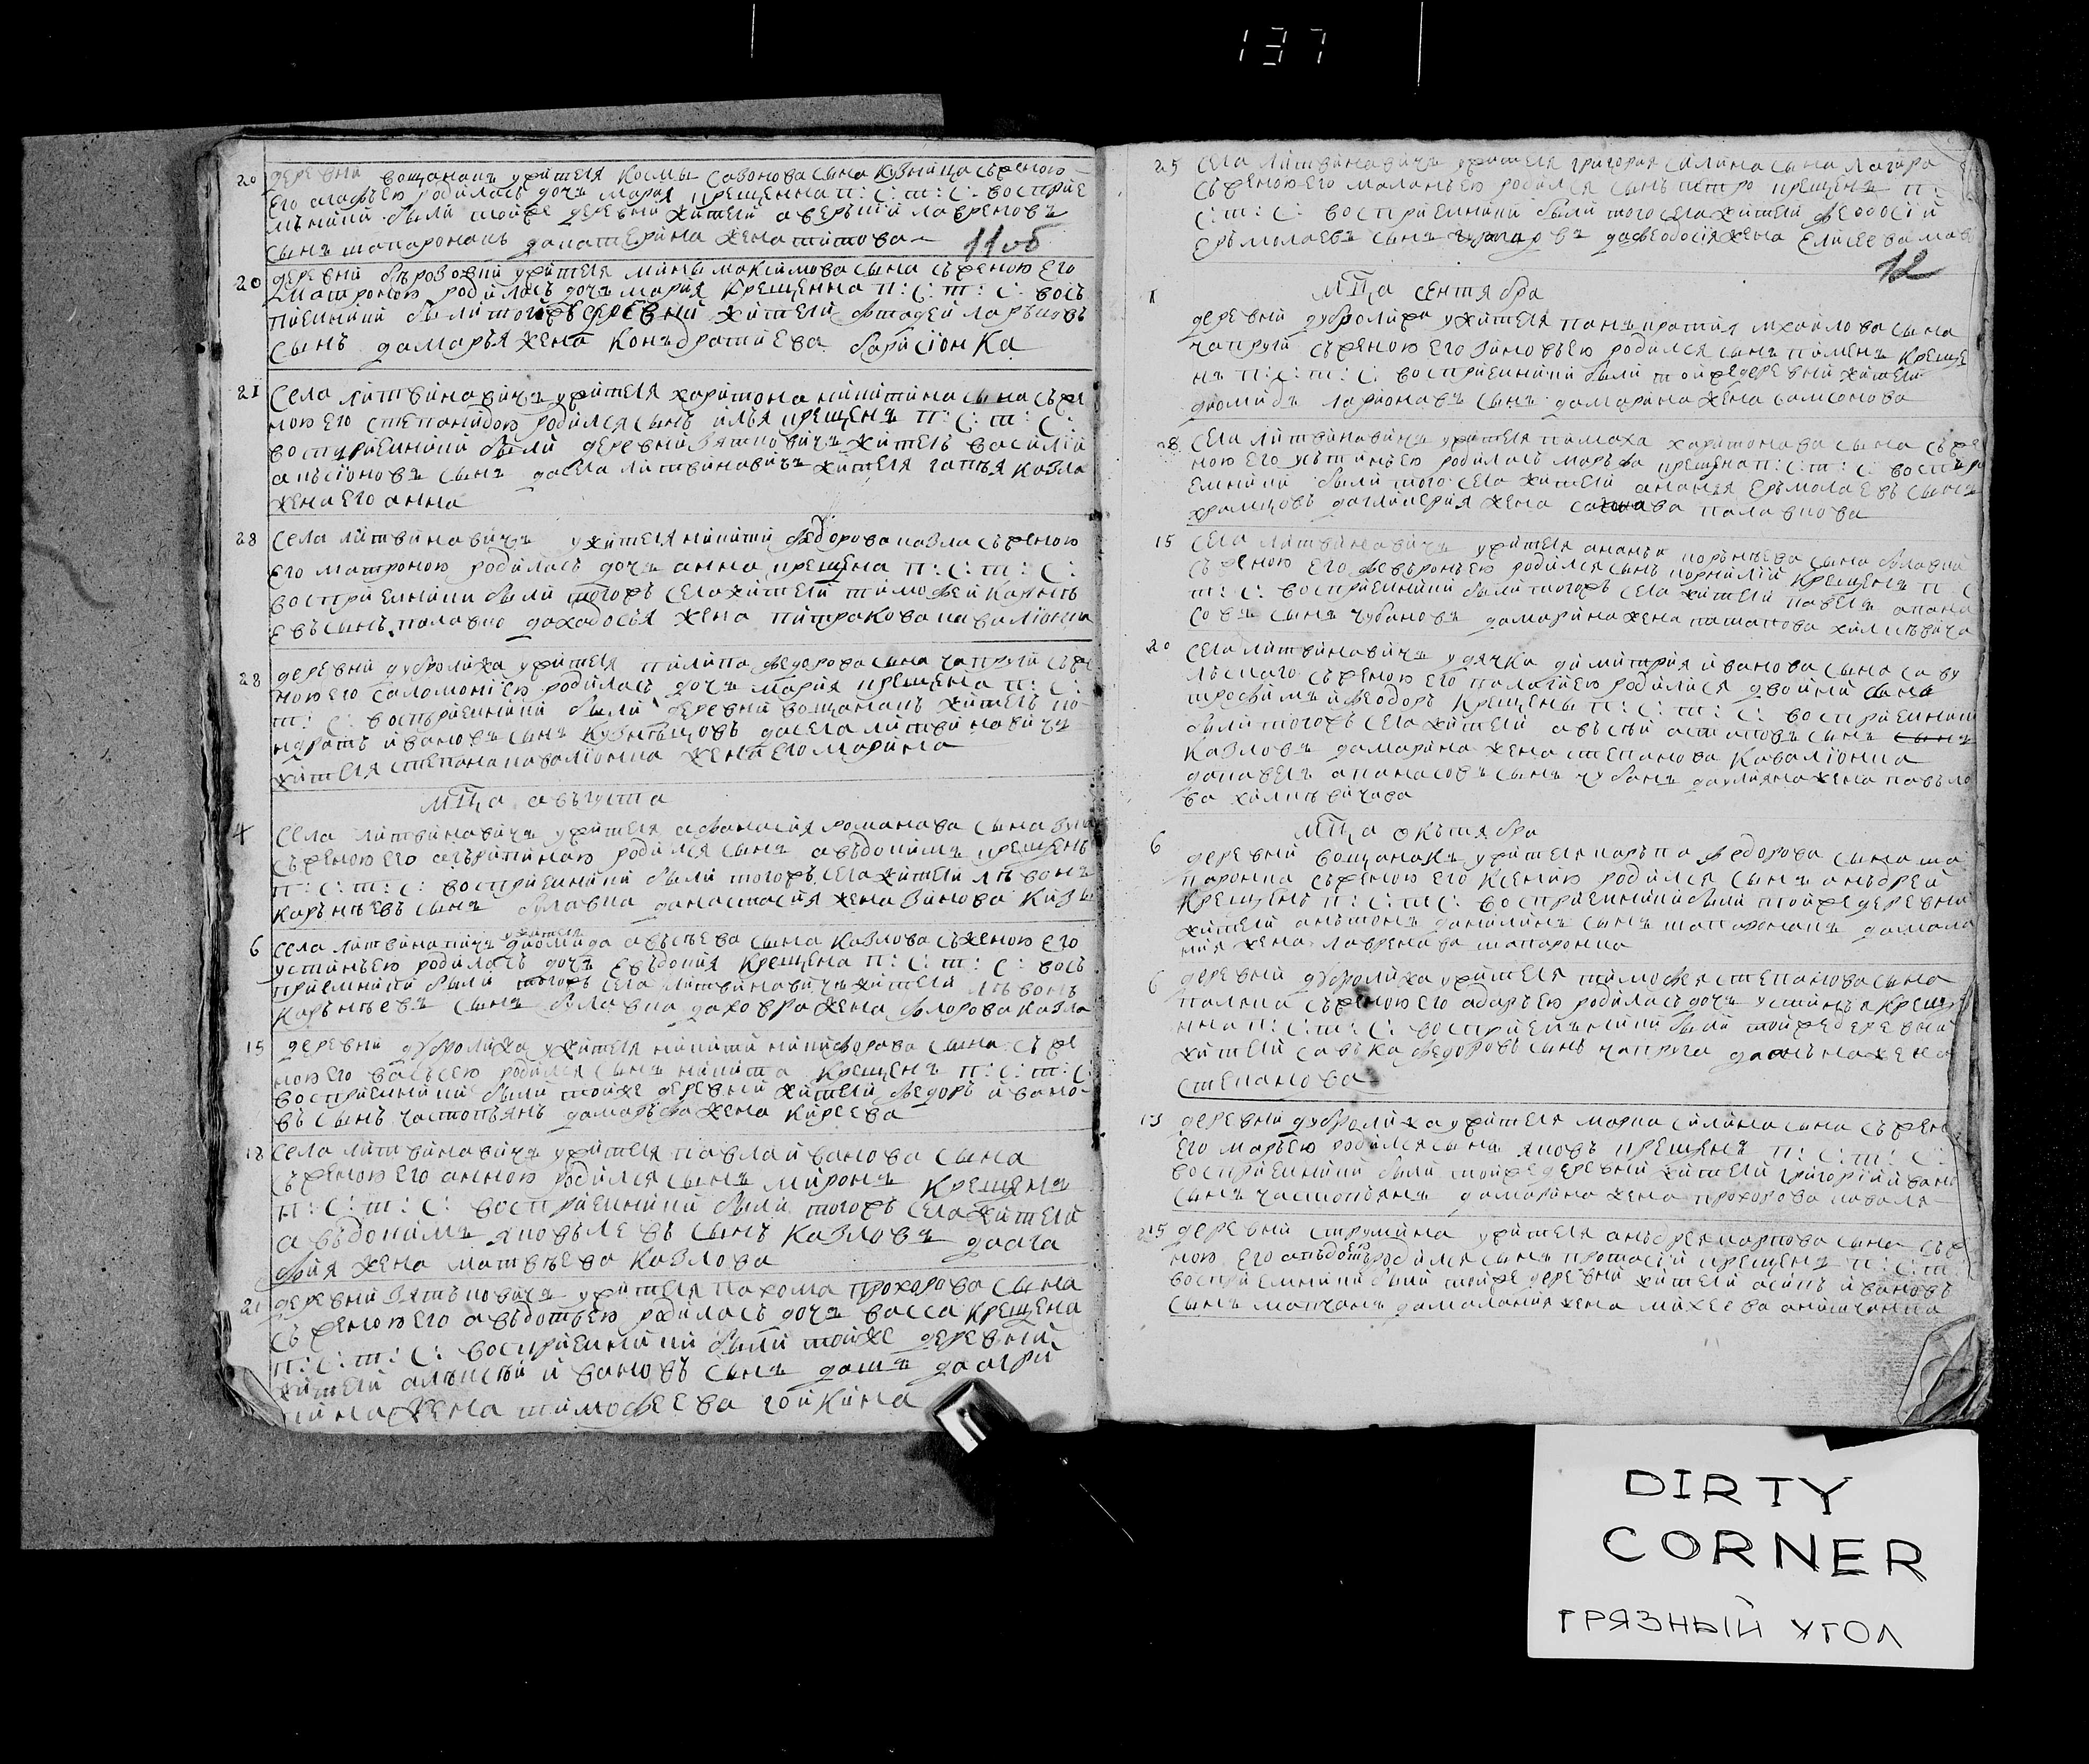 137
20 деревни вощанакъ ужителя космы савонова сына кузнѣца съженою
его агафъею родилась дочъ мария крещенна п: С: т: С: востприе
мъники были тойже деревни жители аверъкий лавреновъ
сынъ шапаронакъ дакатерина жена титова
11об
20 деревни бѣрозовки ужителя мины максимова сына съженою его
матроною родилась дочъ мария крещенна п: С: т: С: вось
приемники были тойжъ деревни жители фтадей ларъновъ
сынъ дамаръя жена конъдратиева барисionка
21 села литвиновичъ ужителя харитона никитина сына съже
ною его степанидою родился сынъ илъя крещенъ п: С: т: С:
востприемники были деревни вятновичъ житель василий
анъсionовъ сынъ дасела литвиновичъ жителя гатъя козла
жена его анна
28 села литвиновичъ ужителя никити федорова козла съженою
его матроною родилась дочъ анна крещена п: С: т: С:
востприемники были тогожъ села жители тимофей карънѣ
евъ сынъ палавко дахадосъя жена питракова ковалionка
28 деревни дубролижа ужителя пилипа федорова сына чапруги съже
ною его саломониею родилась дочъ мария крещена п: С:
т: С: воспъриемники были деревни вощанакъ житель ко
ндратъ ивановъ сынъ кузнѣцовъ дасела литвиновичъ
жителя степана ковалionка жена его марина
мца августа
4 села литвиновичъ ужителя афанасия романова сына
съженою его агърипиною родился сынъ авъдокимъ крещенъ
п: С: т: С: востприемники были тогожъ села жители лѣвонъ
каръпѣевъ сынъ булавка данастасия жена зинова
6 села литвиновичъ ужителя диомида авъсѣева сына козлова съженою его
устинъею родилась дочъ евъдокия крещена п: С: т: С: вось
приемники были тогожъ села литвиновичъ жители лѣвонъ
каръпѣевъ сынъ булавка даховра жена флорова козла
15 деревни дубролижа ужителя никити никифорова сына съже
ною его васъсею родился сынъ никита крещенъ п: С: т: С:
востприемники были тойже деревни жители федоръ ивано
въ сынъ частопѣянъ дамаръфа жена киреева
18 села литвиновичъ ужителя павла иванова сына
съженою его анною родился сынъ миронъ крещенъ
п: С: т: С: востприемники были тогожъ села жители
авъдокимъ яковълевъ сынъ козловъ даага
фия жена матвѣева козлова
21 деревни вятъновичъ ужителя пахома прохорова сына
съженою его авъдотъею родилась дочъ васса крещена
п: С: т: С: востприемники были тойже деревни
жители алъексѣй ивановъ сынъ дашъ даагри
пина жена тимофеева гойкина
25 села литвиновичъ ужителя григория силина сына
съженою его маланъею родился сынъ петро крещенъ п:
С: т: С: востприемники были того села жители феодосий
еръмолаевъ сынъ дафеодосия жена елисеева
12
мца сентября
1 деревни дубролижа ужителя панъкратия михайлова сына
чапруги съженою его зиновъею родился сынъ пименъ креще
нъ п: С: т: С: востприемники были тойже деревни жители
диомидъ ларионавъ сынъ дамарина жена самсонова
28 села литвиновичъ ужителя памаха харитонова сына съже
ною его усътинъею родилась маръфа крещена п: С: т: С: востъпри
емники были того села жители анания еръмолаевъ сынъ
храмцовъ дагликерия жена палавкова
15 села литвиновичъ ужителя ананъи коръпѣева сына булавки
съженою его февъронъею родился сынъ корнилий крещенъ п: С
т: С: востприемники были тогожъ села жители павелъ апана
совъ сынъ чубановъ дамарина жена паташова
20 села литвиновичъ удячка димитрия иванова сына саву
лъскаго съженою его палагиею родилися двойни сына
трофимъ ифеодоръ крещены п: С: т: С: востприемники
были тогожъ села жители авъсѣй астаповъ сынъ
казловъ дамарина жена степанова кавалionка
дапавелъ апанасовъ сынъ чубанъ даулияна жена павъло
ва
мца окътября
6 деревни вощанакъ ужителя каръпа федорова сына ша
паронка съженою его ксениею родился сынъ анъдрей
крещенъ п: С: т: С: востприемники были тойже деревни
жители анътонъ данилинъ сынъ шапаронакъ дамала
ния жена лавренова шапаронка
6 деревни дубролижа ужителя тимофея степанова сына
паляка съженою его адаръею родилась дочъ устинъя креще
нна п: С: т: С: востприемъники были тойже деревни
жители савъка федоровъ сынъ чапруга жена
степанова
13 деревни дубролижа ужителя марка силина сына съжен
его маръею родился сынъ яковъ крещенъ п: С: т: С:
востприемники были тойже деревни жители григорий иван
сынъ частопѣянъ дамарина жена прохорова коваля
25 деревни струмина ужителя анъдрея карпова сына съже
ною его авъдотъею родился сынъ протасий крещенъ п: С: т
востприемники были тойже деревни жители асипъ ивановъ
сынъ мапчанъ дамалания жена михеева
DIRTY
CORNER
ГРЯЗНЫЙ УГОЛ